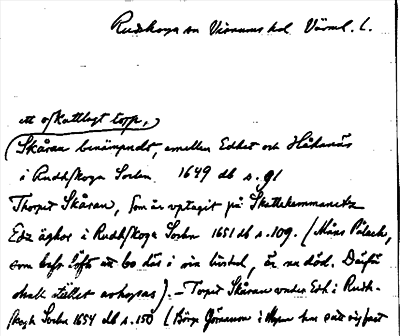 Rudskoga sn Visnums hd Värml. L.
ett oskattlagt torp,
(Skåran benämpndt, emellan Edhet och Håkanäs
i Rudhskoga Sochn 1649 db s. 91
Thorpet Skåran, som är uptagit på Skattekammaretz
Edz äghor i Rudhskoga Sochn 1651 db s. 109. (Måns Pålack,
som hafr låfft att bo där i sin lijvstid, är nu död. Därför
skall stället avhysas). – Torpet Skåran under Edh i Rudh-
skogh Sochn 1654 db s. 150 (Börge Göranson i